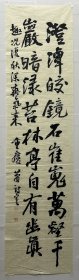 澄潭皎鏡石崔嵬萬壑千
巖暗綠苔林亭自有幽貞
趣況復秋深爽氣來